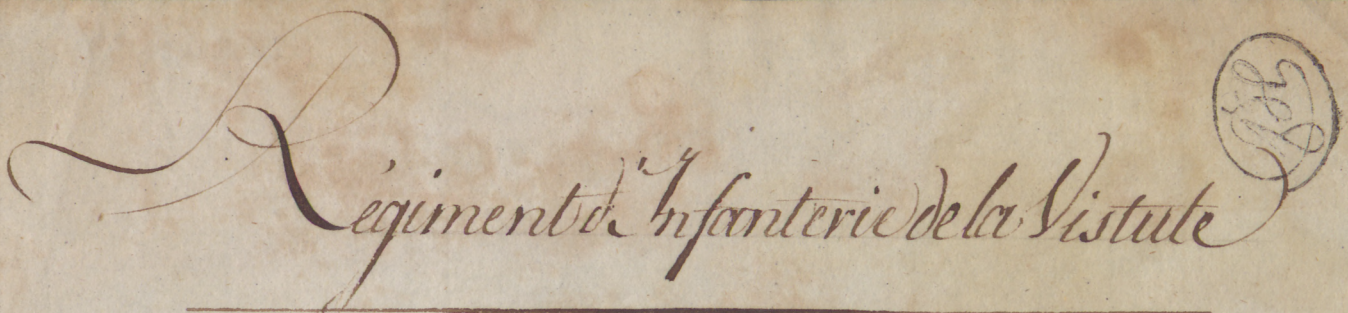 Régiment d'Infanterie de la Vistute